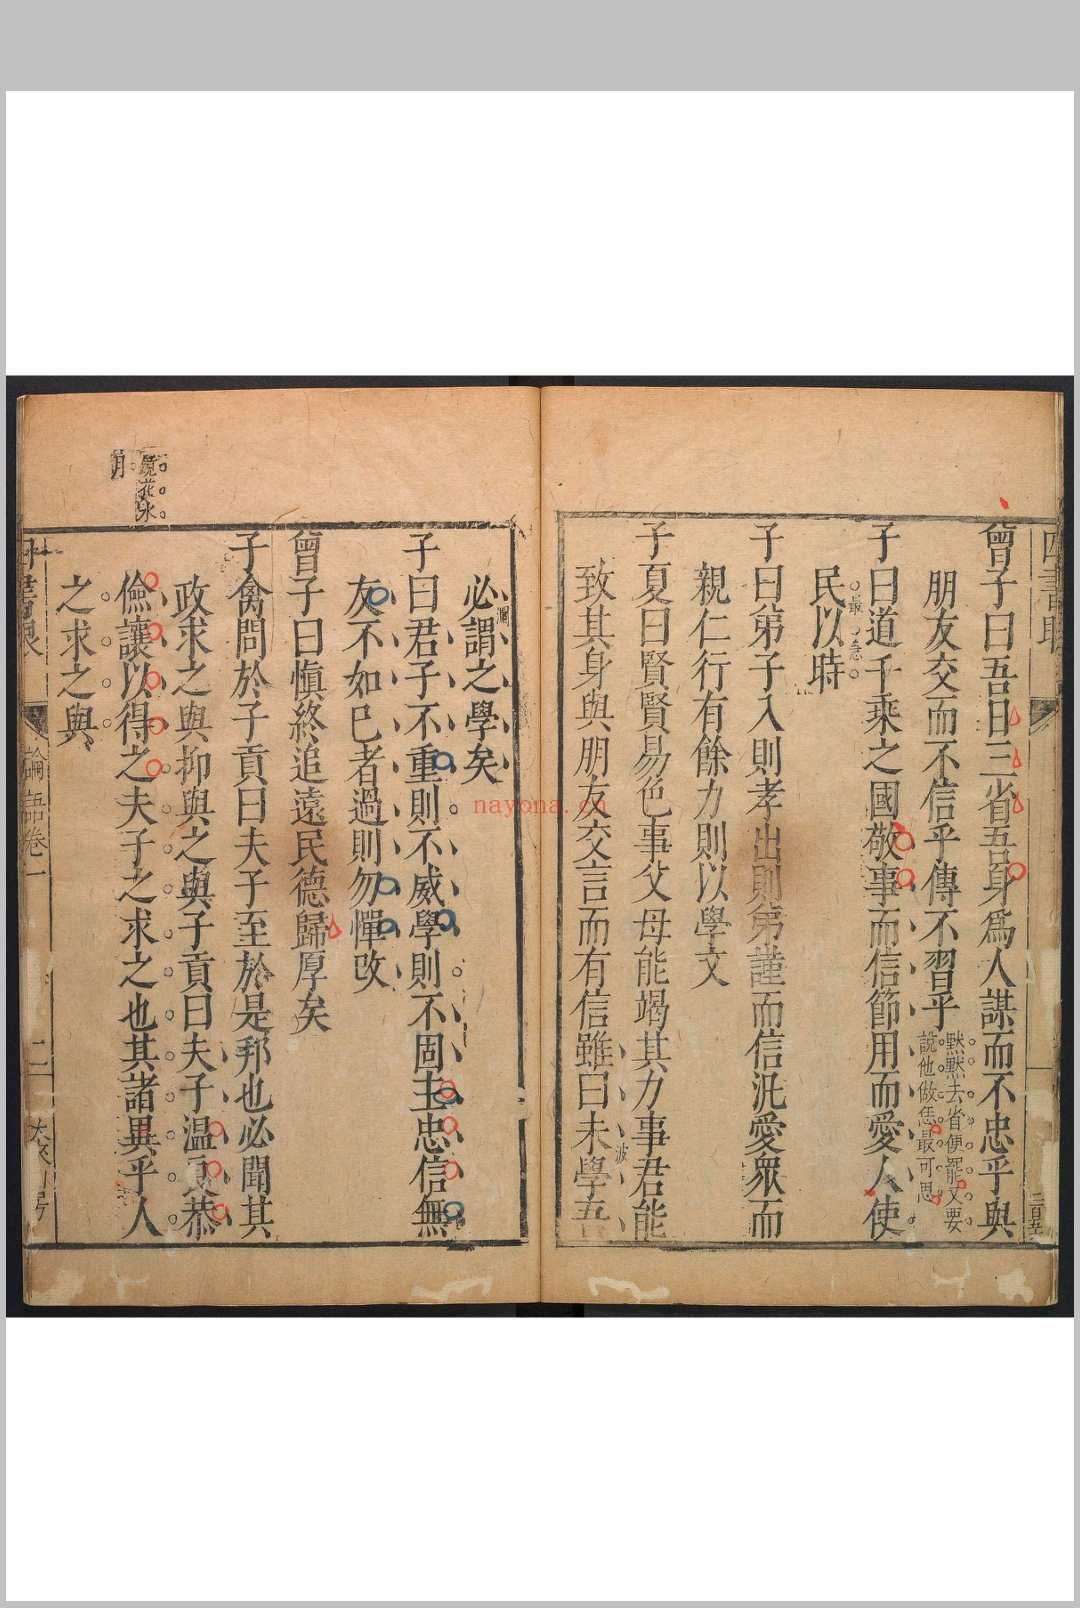 曾子曰吾日三省吾身爲人謀而不忠乎與
朋友交而不信乎傳不習乎
黙黙去省便罷又要
說他做恁最可思
子曰道千乘之國敬事而信節用而愛人使
民以時
子曰弟子入則孝出則弟謹而信汎愛衆而
親仁行有餘力則以學文
子夏曰賢賢易色事父母能竭其力事君能
致其身與朋友交言而有信雖曰未學吾
波
必謂之學矣
瀾
子曰君子不重則不威學則不固主忠信無
友不如已者過則勿憚改
曾子曰愼終追遠民德歸厚矣
子禽問於子貢曰夫子至於是邦也必聞其
政求之與抑與之與子貢曰夫子温良恭
儉讓以得之夫子之求之也其諸異乎人
之求之與
鏡花水
月
論語卷一
二
nayona.cn